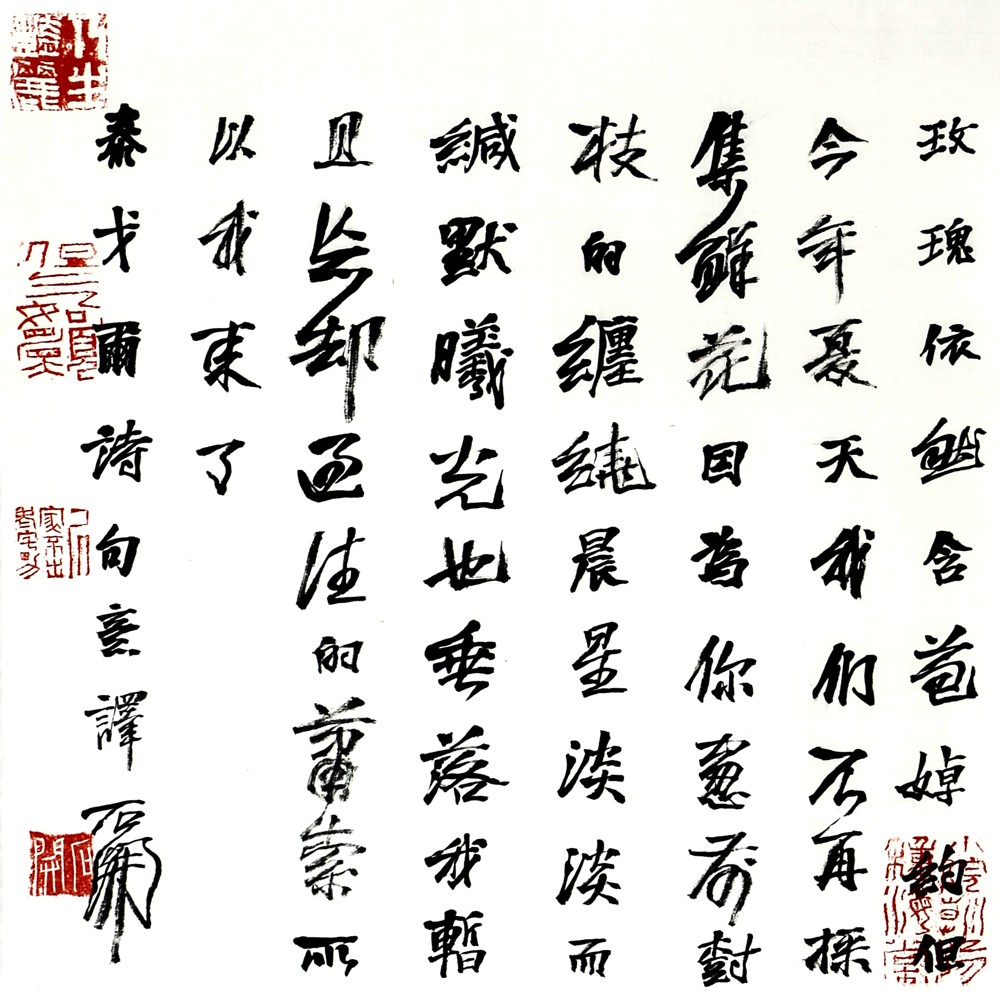 玫瑰依然含苞婥約但
今年夏天我們不再採
集鮮花因為你窗前對
枝的纏繞晨星淡淡而
緘默曦光也垂落我暫
且忘卻過往的蕭索所
以我來了
泰戈爾詩句意譯 石開
石開